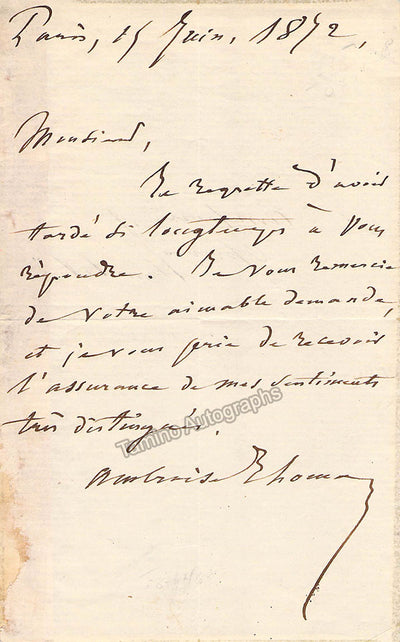 Paris, 15 Juin, 1872,
Monsieur,
Je regrette d'avoir
tardé si longtemps à vous
répondre. Je vous remercie
de votre aimable demande,
et je vous prie de recevoir
l'assurance de mes sentiments
très distingués.
Tamino Autographs
Ambroise Thomas